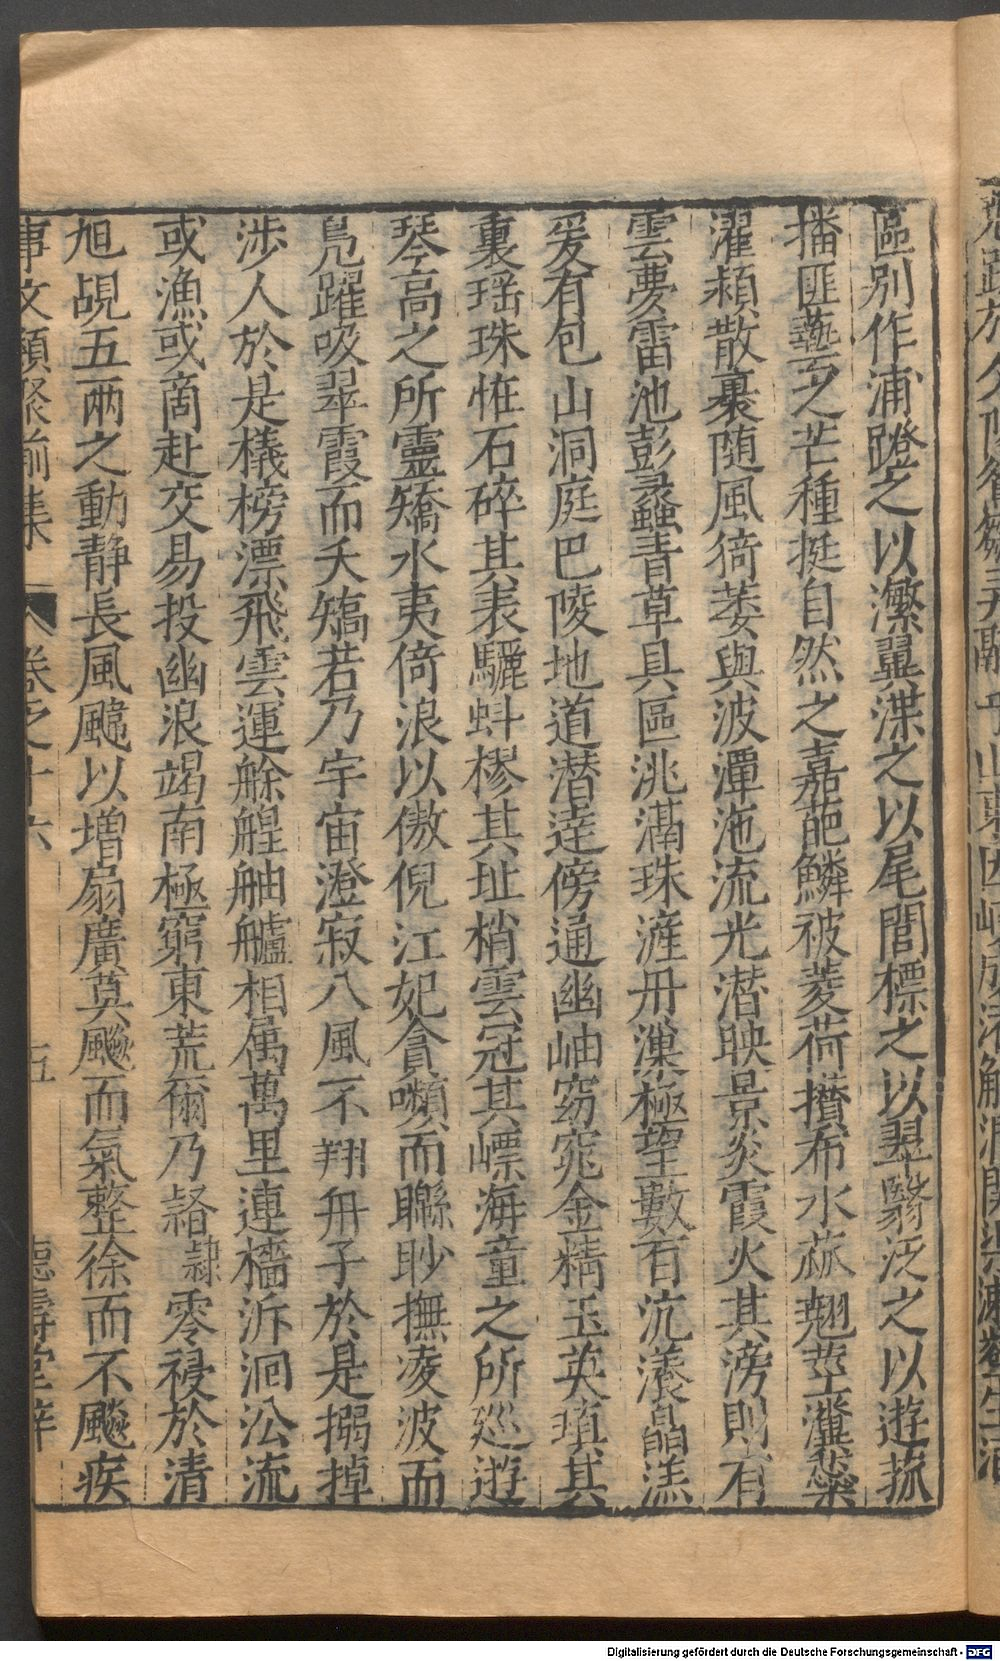 區別作浦隥之以瀿㶠渫之以尾閭標之以翠翳泛之以遊菰
播匪藝之芒種挺自然之嘉葩鱗被菱荷攅布水蓏翹莖瀵蘂
濯穎散裹随風猗萎與波潭沲流光潜映景炎霞火其滂則有
雲夢雷池彭蠡青草具區洮滆珠滻丹漅極望數百沆瀁皛溔
爰有包山洞庭巴陵地道潜逵傍通幽岫窈窕金精玉英瑱其
裏瑶珠恠石碎其表驪蚪樛其址梢雲冠其嶛海童之所巡遊
琴高之所靈矯氷夷倚浪以傲倪江妃含嚬而矊眇撫凌波而
鳬躍吸翠霞而夭矯若乃宇宙澄寂八風不翔舟子於是搦棹
渉人於是檥榜漂飛雲運艅艎舳艫相属萬里連檣泝洄沿流
或漁或商赴交易投幽浪竭南極窮東荒爾乃䜅隸雰祲於清
旭覘五兩之動静長風颹以增扇廣莫䬅而氣整徐而不飇疾
事文類聚前集 卷之十六 五 德壽堂梓